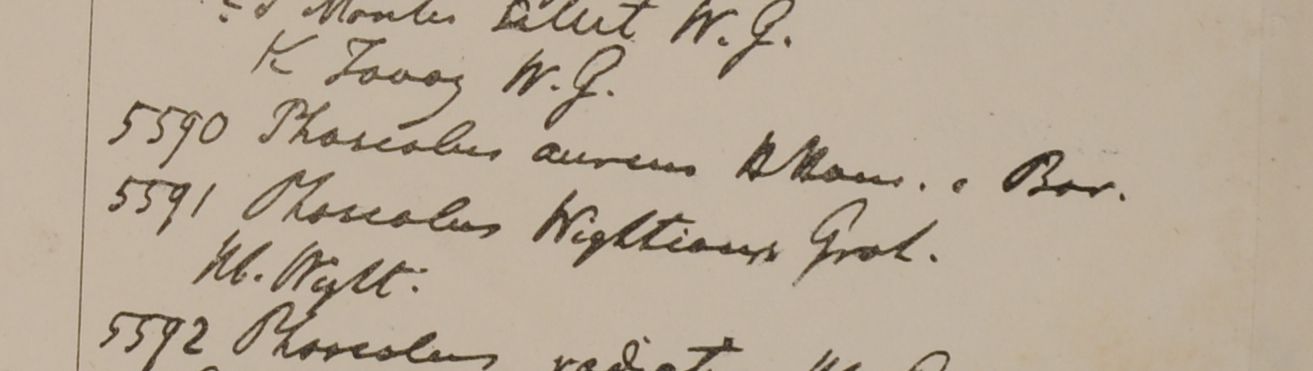 Montes W. G.
K Tavoy W. G.
5590 Phaseolus aureus Ham. . Bar.
5591 Phaseolus Wightianus Grah.
Hb. Wight.
5592 Phaseolus radiat